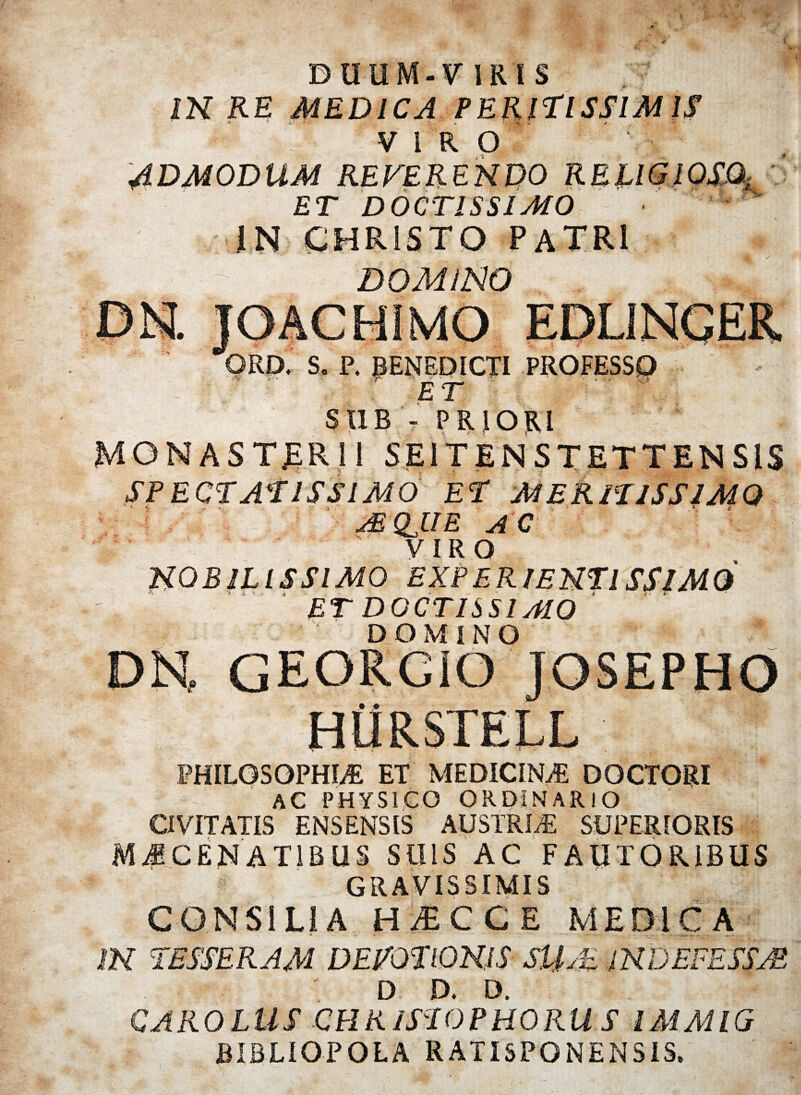 DUUM-VIRIS
IN RE MEDICA PERITISSIMIS
VIRO
ADMODUM REVERENDO RELIGIOSO,
ET DOCTISSIMO
IN CHRISTO PATRI
DOMINO
DN. JOACHIMO EDLINGER
ORD. S. P. BENEDICTI PROFESSO
ET
SUB-PRIORI
MONASTERII SEITENSTETTENSIS
SPECTATISSIMO ET MERITISSIMO
ÆQUE AC
VIRO
NOBILISSIMO EXPERIENTISSIMO
ET DOCTISSIMO
DOMINO
DN. GEORGIO JOSEPHO
HÜRSTELL
PHILOSOPHIÆ ET MEDICINÆ DOCTORI
AC PHYSICO ORDINARIO
CIVITATIS ENSENSIS AUSTRIÆ SUPERIORIS
MÆCENATIBUS SUIS AC FAUTORIBUS
GRAVISSIMIS
CONSILIA HÆCCE MEDICA
IN TESSERAM DEVOTIONIS SUÆ INDEFESSÆ
D D. D.
CAROLUS CHRISTOPHORUS IMMIG
BIBLIOPOLA RATISPONENSIS.